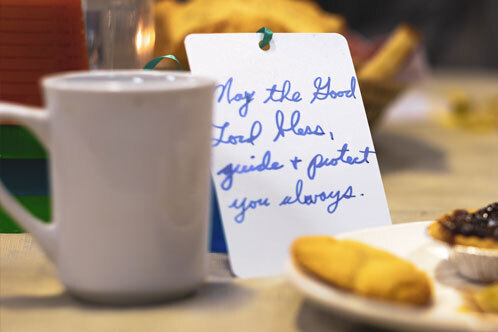 May the Good
Lord bless,
guide + protect
you always.